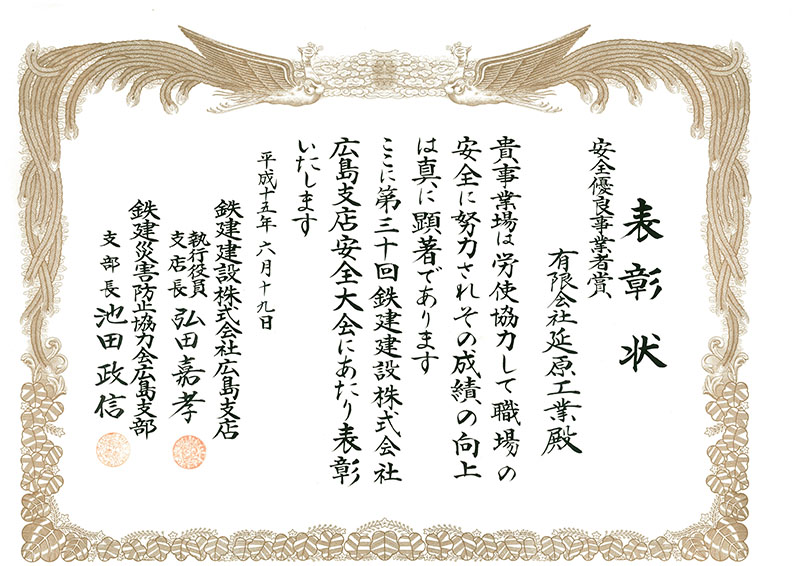 表彰状
安全優良事業者賞
有限会社延原工業殿
貴事業場は労使協力して職場の
安全に努力されその成績の向上
は真に顕著であります
ここに第三十回鉄建建設株式会社
広島支店安全大会にあたり表彰
いたします
平成十五年六月十九日
鉄建建設株式会社広島支店
執行役員
支店長 弘田嘉孝
鉄建災害防止協力会広島支部
支部長 池田政信